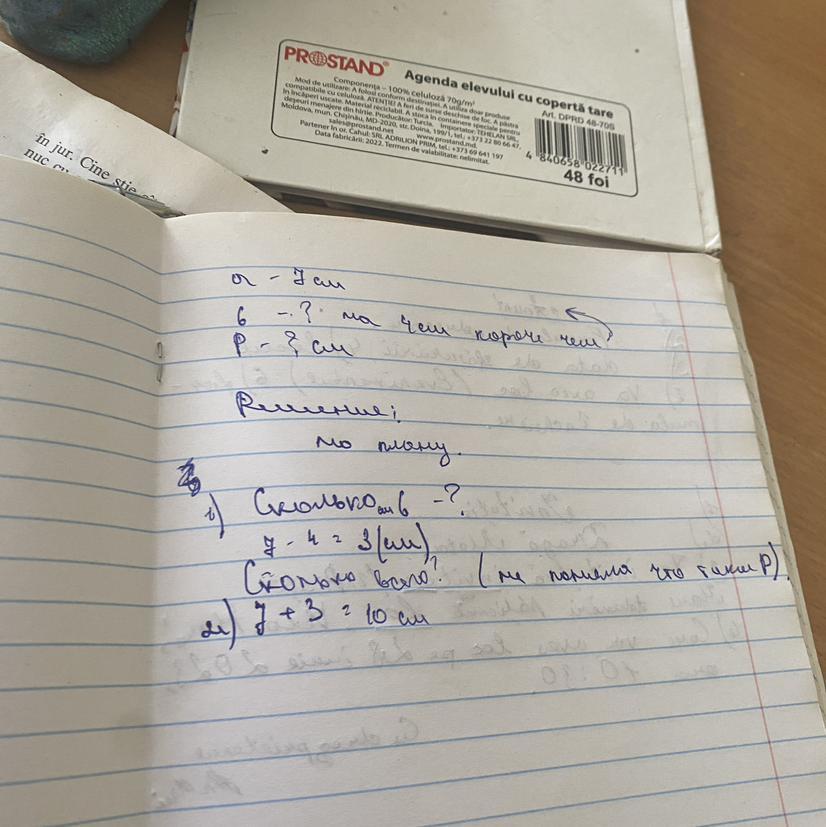 PROSTAND®
Agenda elevului cu copertă tare
Componența – 100% celuloză 70g/m²
Art. DPRD 48-70S
Mod de utilizare: A folosi conform destinației. A utiliza doar produse
compatibile cu celuloză. ATENȚIE! A feri de surse deschise de foc. A păstra
în încăperi uscate. Material reciclabil. A stoca în containere speciale pentru
deșeuri menajere din hîrtie. Producător: Turcia. Importator: TEHELAN SRL,
Moldova, mun. Chișinău, MD-2020, str. Doina, 199/1, tel.: +373 22 80 66 47,
sales@prostand.net www.prostand.md.
Partener în or. Cahul: SRL ADRILION PRIM, tel.: +373 69 641 197
Data fabricării: 2022. Termen de valabilitate: nelimitat.
4 840658 022711
48 foi
în jur. Cine știe
nuc
a - 7 см
б - ? на чем короче чем
P - ? см
Решение;
по плану.
1) Сколько см б - ?
7 - 4 = 3 (см)
Сколько всего? (не поняла что такое P)
2) 7 + 3 = 10 см